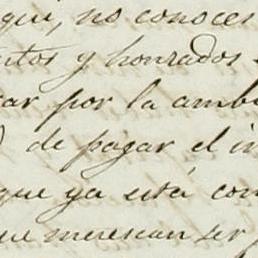 qui, no conoces
tos y honrados
ar por la amb
) de pagar el in
que ya está con
ue merescan ser